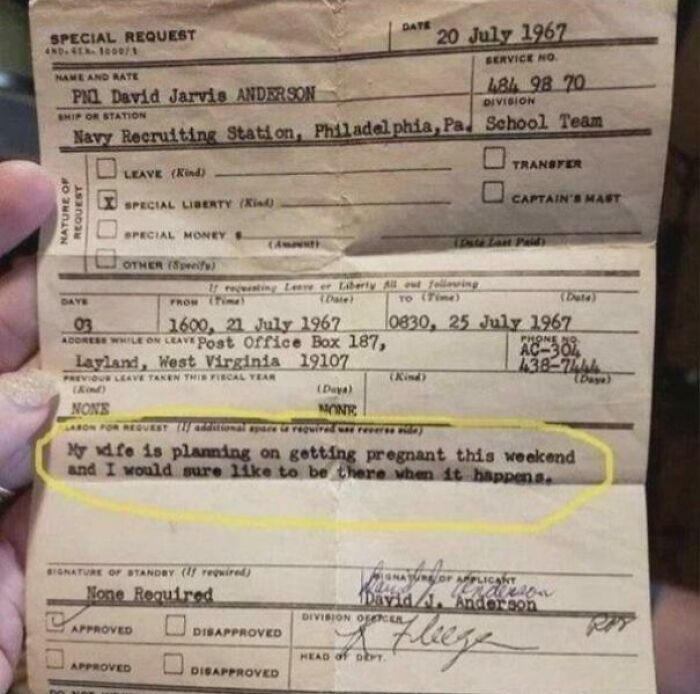 SPECIAL REQUEST
DATE 20 July 1967
NAME AND RATE
PN1 David Jarvis ANDERSON
SERVICE NO.
484 98 70
SHIP OR STATION
Navy Recruiting Station, Philadelphia, Pa.
DIVISION
School Team
NATURE OF REQUEST
LEAVE (Kind)
TRANSFER
X SPECIAL LIBERTY (Kind)
CAPTAIN'S MAST
SPECIAL MONEY $
(Amount) (Date Last Paid)
OTHER (Specify)
If requesting Leave or Liberty fill out following
DAYS FROM (Time) (Date) TO (Time) (Date)
03 1600, 21 July 1967 0830, 25 July 1967
ADDRESS WHILE ON LEAVE Post Office Box 187,
Layland, West Virginia 19107
PHONE NO.
AC-304
438-7444
PREVIOUS LEAVE TAKEN THIS FISCAL YEAR
(Kind) (Days) (Kind) (Days)
NONE NONE
REASON FOR REQUEST (If additional space is required use reverse side)
My wife is planning on getting pregnant this weekend
and I would sure like to be there when it happens.
SIGNATURE OF STANDBY (If required)
None Required
SIGNATURE OF APPLICANT
David J. Anderson
David J. Anderson
APPROVED DISAPPROVED
DIVISION OFFICER
APPROVED DISAPPROVED
HEAD OF DEPT.